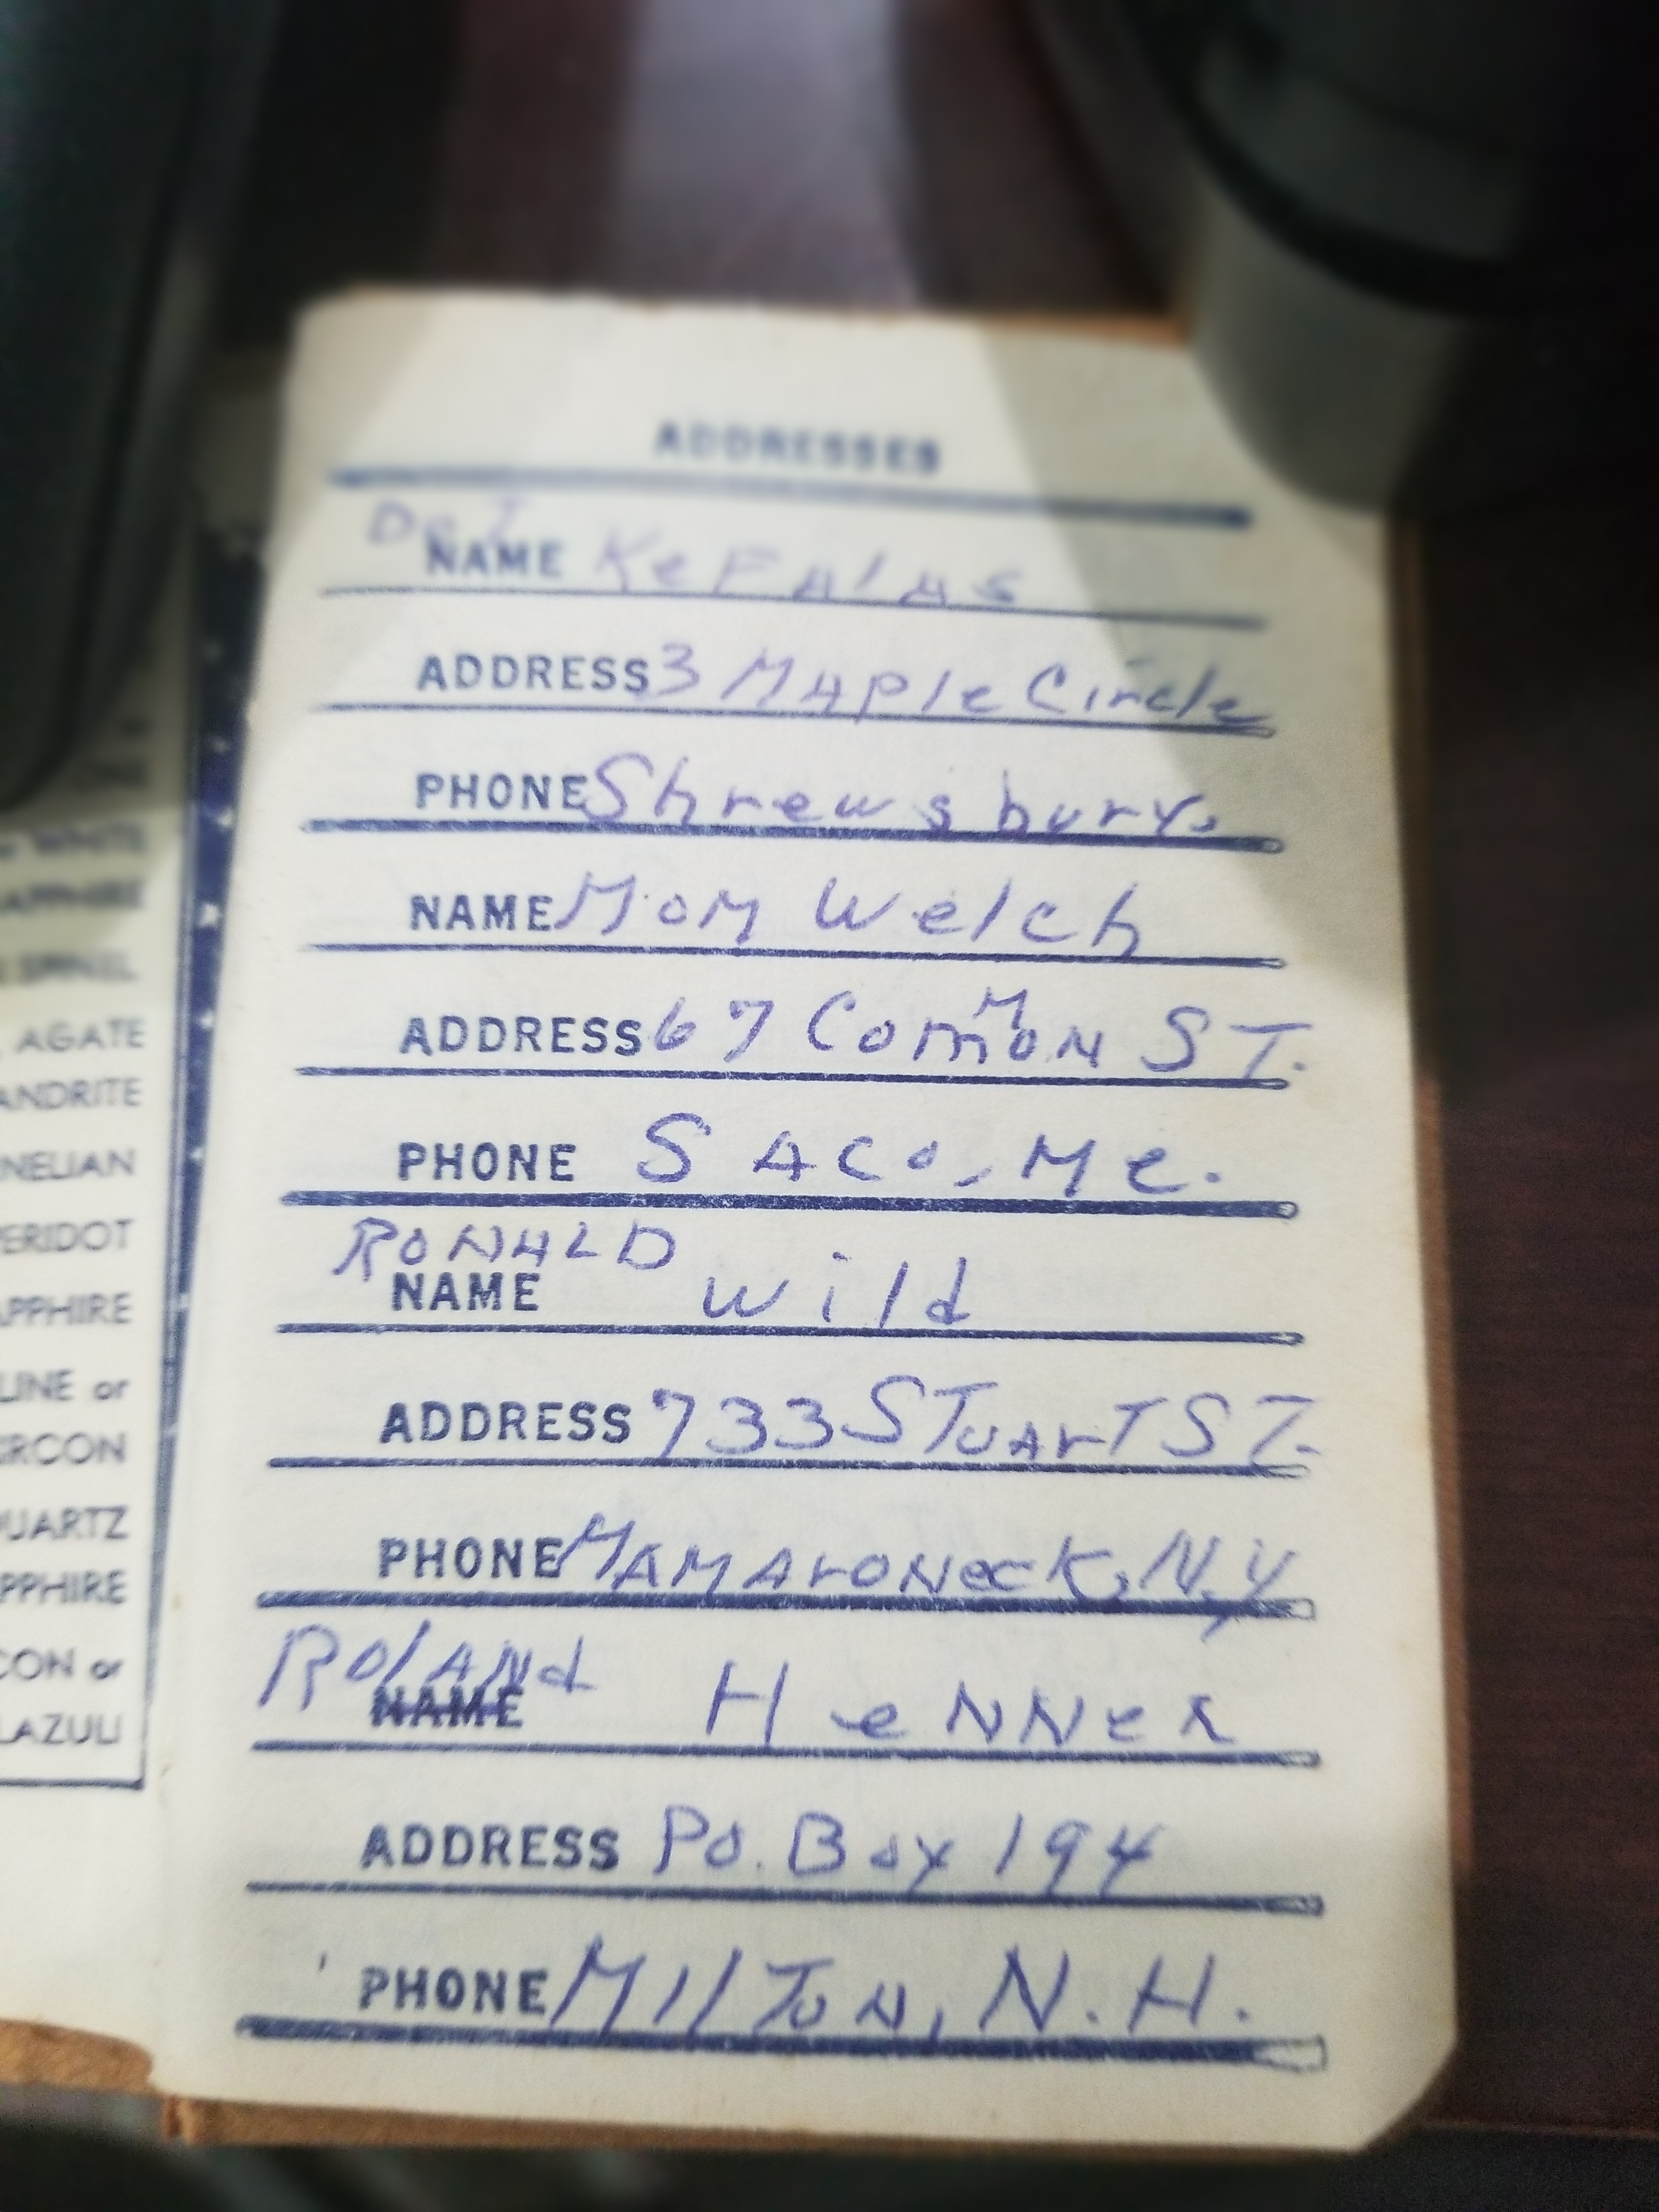 WHITE
SAPPHIRE
SPINEL
AGATE
PERIDOT
LINE or
QUARTZ
or
ADDRESSES
NAME KeFAlAs
ADDRESS 3 MAple Circle
PHONE Shrewsbury.
NAME MoM Welch
ADDRESS 67 CommoN ST.
PHONE SAco, Me.
RONALD
NAME Wild
ADDRESS 733 STuArT ST.
PHONE MAMAroNecK, N.Y
RolANd
NAME HeNNeR
ADDRESS Po. Box 194
PHONE MilToN, N.H.